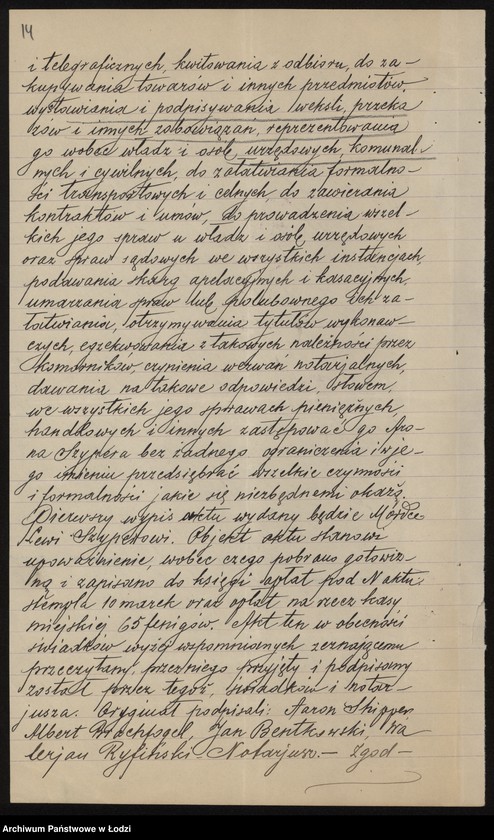 14
i telegraficznych, kwitowania z odbioru, do za-
kupywania towarów i innych przedmiotów,
wystawiania i podpisywania weksli, przeka
zów i innych zobowiązań, reprezentowania
go wobec władz i osób urzędowych, komunal-
nych i cywilnych, do załatwiania formalno-
ści transportowych i celnych, do zawierania
kontraktów i umów, do prowadzenia wszel-
kich jego spraw u władz i osób urzędowych
oraz spraw sądowych we wszystkich instancjach,
podawania skarg apelacyjnych i kasacyjnych,
umarzania spraw lub polubownego ich za-
łatwiania, otrzymywania tytułów wykonaw-
czych, egzekwowania z takowych należności przez
komorników, czynienia wezwań notarjalnych,
dawania na takowe odpowiedzi, słowem,
we wszystkich jego sprawach pieniężnych,
handlowych i innych zastępować go Aro-
na Szypera bez żadnego ograniczenia i w je-
go imieniu przedsiębrać wszelkie czynności
i formalności, jakie się niezbędnemi okażą.
Pierwszy wypis aktu wydany będzie Mordce
Lewi Szyperowi. Objekt aktu stanowi
upoważnienie, wobec czego pobrano gotowiz-
ną i zapisano do księgi opłat pod N aktu:
stempla 10 marek oraz opłat na rzecz kasy
miejskiej 65 fenigów. Akt ten w obecności
świadków wyżej wspomnianych zeznającemu
przeczytany, przez niego przyjęty i podpisany
został przez tegoż, świadków i notar-
jusza. Oryginał podpisali: Aaron Shipper,
Albert Jan Bentkowski, Wa
lerjan Ryfiński Notarjusz.- Zgod-
Archiwum Państwowe w Łodzi